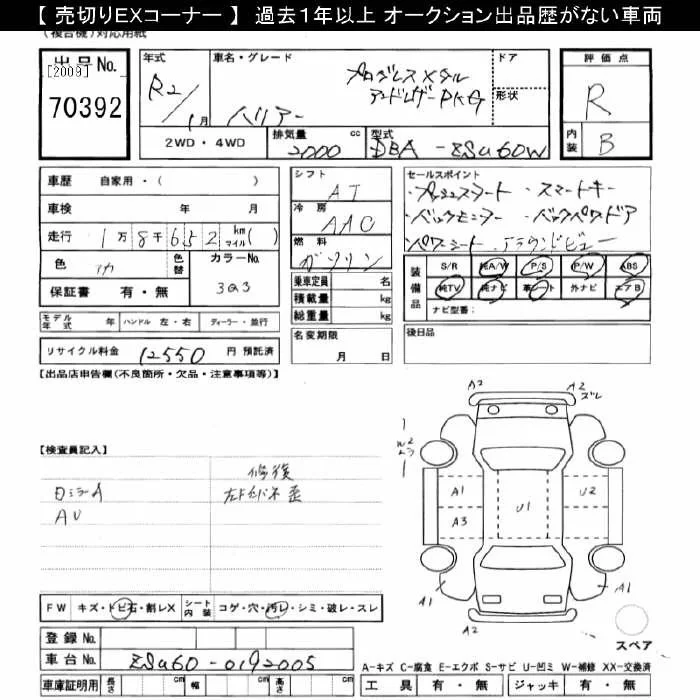 【 売切りEXコーナー 】 過去1年以上 オークション出品歴がない車両
(複合機)対応用紙
出品No.
[2009]
70392
年式
R2/1月
車名・グレード
プログレス メタル
アンドレザーPKG
ハリアー
ドア
形状
評価点
R
内装
B
2WD・4WD
排気量
cc
2000
型式
DBA-ZSU60W
車歴 自家用・( )
車検 年 月
走行 1万8千652 km マイル( )
色
色替
カラーNo.
3Q3
保証書 有・無
モデル年式 年 ハンドル 左・右 ディーラー・並行
リサイクル料金 12550 円 預託済
シフト
AT
冷房
AAC
燃料
ガソリン
乗車定員 名
積載量 kg
総重量 kg
名変期限
月 日
セールスポイント
・プッシュスタート ・スマートキー
・バックモニター ・バックパワードア
・パワーシート ・アラウンドビュー
装備品
S/R 純A/W P/S P/W ABS
純TV 純ナビ 革シート 外ナビ エアB
ナビ型番:
後日品
【出品店申告欄(不良箇所・欠品・注意事項等)】
【検査員記入】
修復
ロミラーA
AU
A2
A2
ズレ
A1
A3
U1
U2
A1
A1
A2
スペア
FW キズ・トビ石・割レX シート内装 コゲ・穴・汚レ・シミ・破レ・スレ
登録 No.
車台 No. ZSU60-0192005
A-キズ C-腐食 E-エクボ S-サビ U-凹ミ W-補修 XX-交換済
車庫証明用 長さ cm 幅 cm 高さ cm
工具 有・無 ジャッキ 有・無